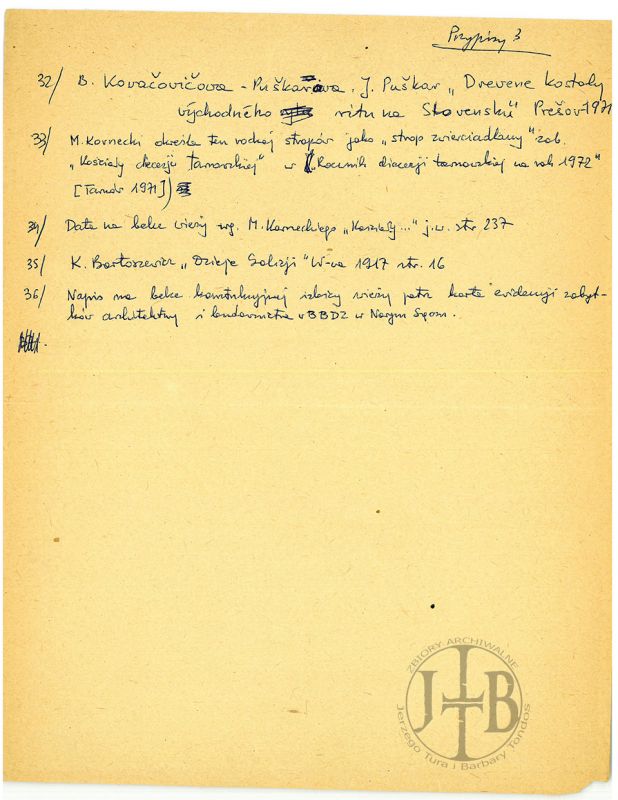 Przypisy 3
32/ B. Kovačovičova - Puškarova, J. Puškar „Drevene kostoly
východného ritu na Slovenskú" Prešov 1971
33/ M. Kornecki określa ten rodzaj stropów jako „strop zwierciadlany" zob.
„Kościoły diecezji tarnowskiej" w („Rocznik diecezji tarnowskiej na rok 1972"
[Tarnów 1971])
34/ Data na belce wieży wg. M. Korneckiego „Kościoły..." j.w. str. 237
35/ K. Bartoszewicz „Dzieje Galicji" W-wa 1917 str. 16
36/ Napis na belce konstrukcyjnej izbicy wieży patrz karta ewidencji zabyt-
ków architektury i budownictwa w BBDZ w Nowym Sączu.
ZBIORY ARCHIWALNE
JTTB
Jerzego Tura i Barbary Tondos